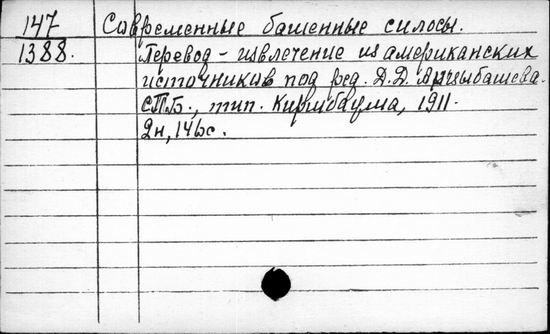 147 Современные башенные силосы.
1388. Перевод - извлечение из американских
источников под ред. Д.Д. Арцыбашева.
СПБ., тип. Киршбаума, 1911.
2н, 146с.